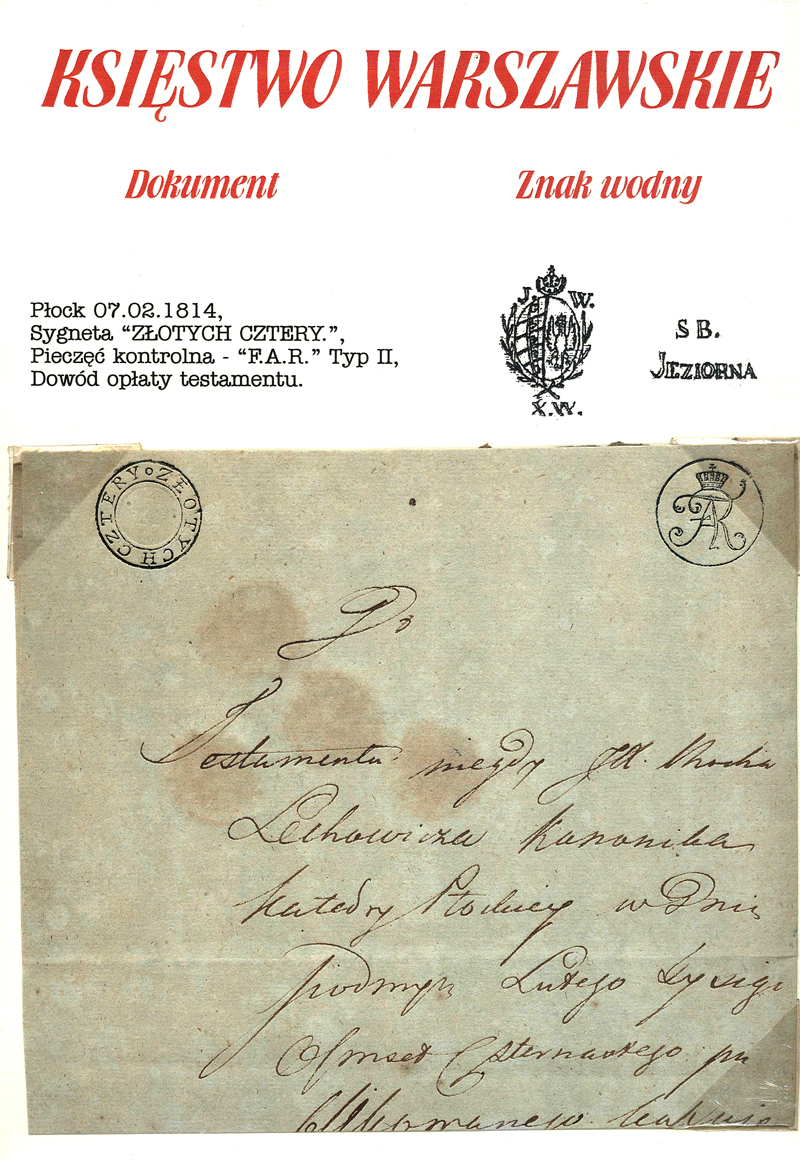 KSIĘSTWO WARSZAWSKIE
Dokument
Znak wodny
Płock 07.02.1814,
Sygneta “ZŁOTYCH CZTERY.”,
Pieczęć kontrolna - “F.A.R.” Typ II,
Dowód opłaty testamentu.
J. W.
X.W.
S B.
JEZIORNA
ZŁOTYCH CZTERY
FAR
Do
Testamentu niegdy JX. Rocha
Lechowicza Kanonika
Katedry Płockiey w Dniu
Lutego tysiąc
Osmset Czternastego